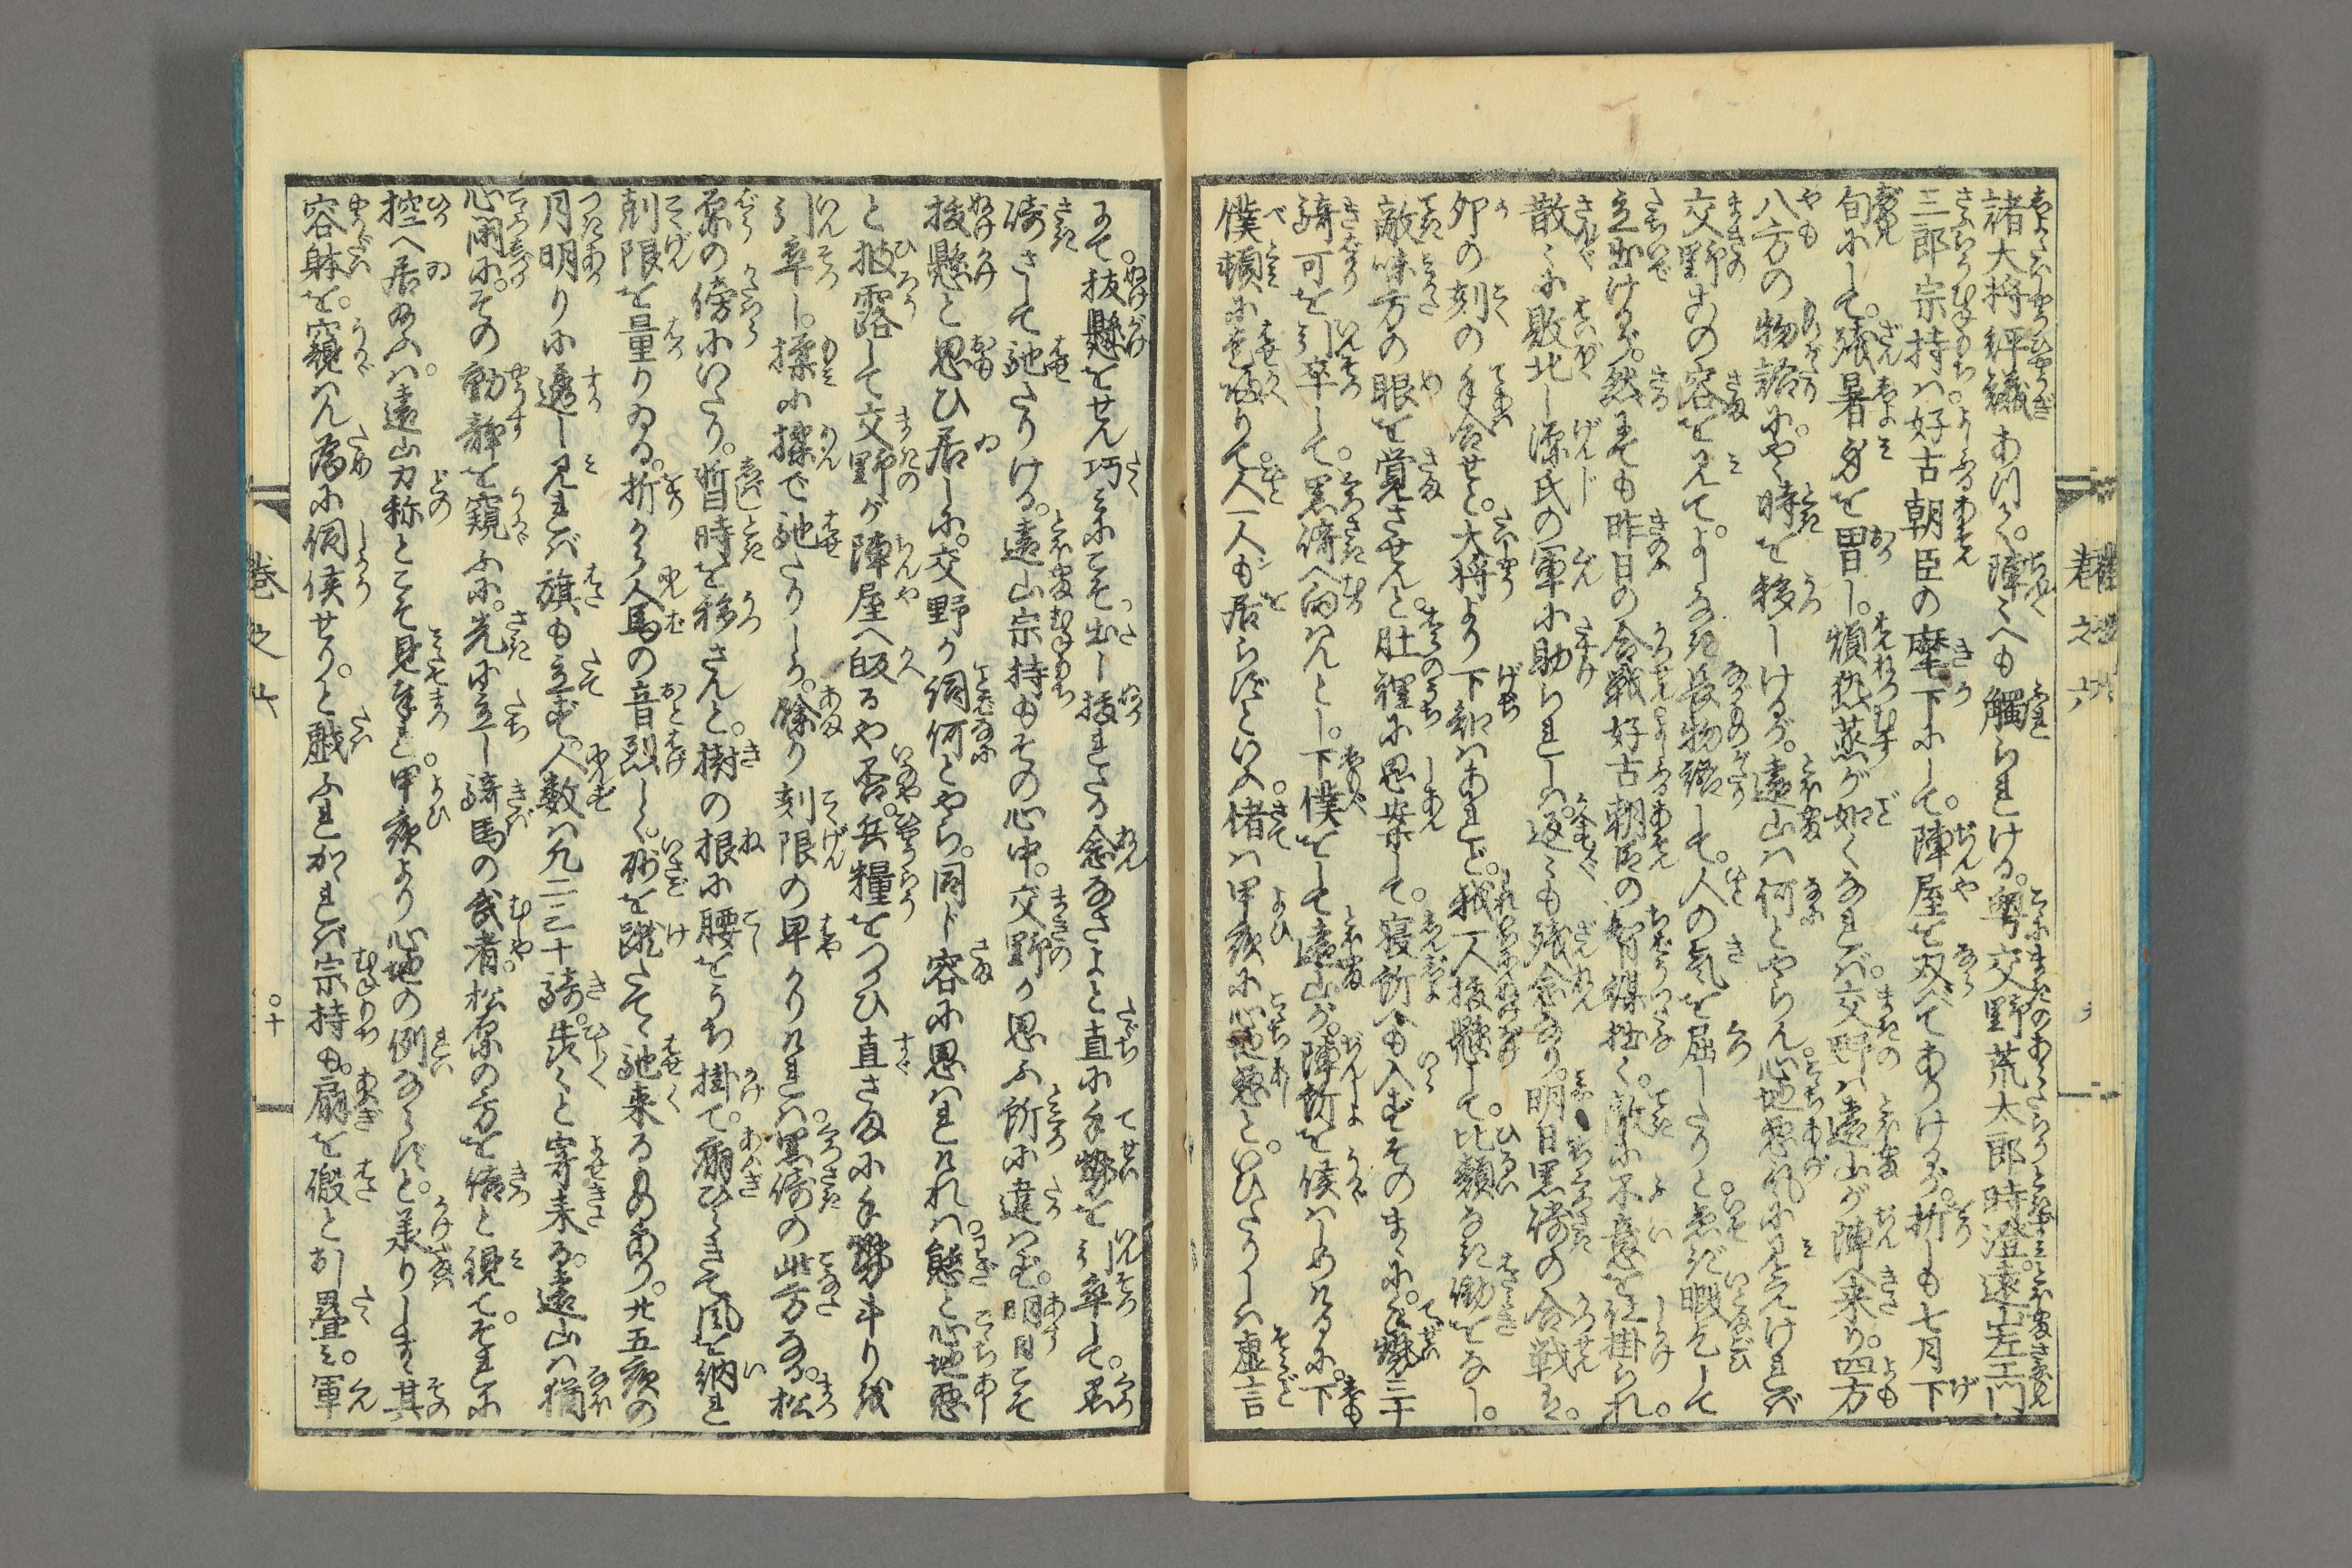 諸大将評議ありて。陣々へも觸られける。粤交野荒太郎時澄。遠山左エ門
三郎宗持は好古朝臣の麾下にして。陣屋を双べてありけるが。折しも七月下
旬にして。残暑身を冒し。頻熱蒸が如くなれば。交野は遠山が陣へ来り。四方
八方の物語に。やゝ時を移しけるが。遠山は何とやらん。心地悪気に見えければ
交野この容を見て。よしなき長物語して。人の気を屈したりと急ぎ暇乞して
立出けるが。然るにても昨日の合戦好古朝臣の智謀拙く。敵に不意を仕掛られ。
散々に敗北し源氏の軍に助られしは。返々も残念なり。明日黒倚の合戦は。
卯の刻の手合せと。大将より下知はあれど。我一人抜懸して。比類なき働をなし。
敵味方の眼を覚させんと。肚裡に思案して。寝所へも入ずそのまゝに。手勢三十
騎可を引卒して。黒倚へ向はんとし。下僕をして遠山が。陣所を候はしめけるに。下
僕頓に走帰りて。人一人も居らずといふ。偖は甲夜に心地悪と。いひたりしは虚言
にて。抜懸をせん巧みにこそ出し抜れたる念なさよと直に手勢を引卒して。黒
倚さして馳たりける。遠山宗持もその心中。交野が思ふ所に違はず。明日こそ
抜懸と思ひ居しに。交野が伺何とやら。同じ容に思はれければ。態と心地悪
と披露して交野が陣屋へ皈るや否。兵糧をつかひ直さまに手勢斗り
引卒し。揉に揉で馳たりしが。餘り刻限の早かりければ。黒倚の此方なる。松
原の傍にいたり。暫時を移さんと。樹の根に腰をうち掛て。扇ひらきて風を納れ
刻限を量りゐる。折から人馬の音烈しく。砂を蹴たて馳来るものあり。廿五夜の
月明りに透し見れば旗も立ず。人数は凡二三十騎。歩々と寄来る。遠山は猶
心閑に。その動静を窺ふに。先に立し騎馬の武者。松原の方を倚と視て。それに
控へ居給ふは。遠山刀祢とこそ見奉れ。甲夜より心地の例ならずと。承りしまゝ其
容躰を。窺はん為に伺候せりと戯ふれかれば宗持も。扇を礑とおし畳み。軍
巻之六
巻之六
〇十